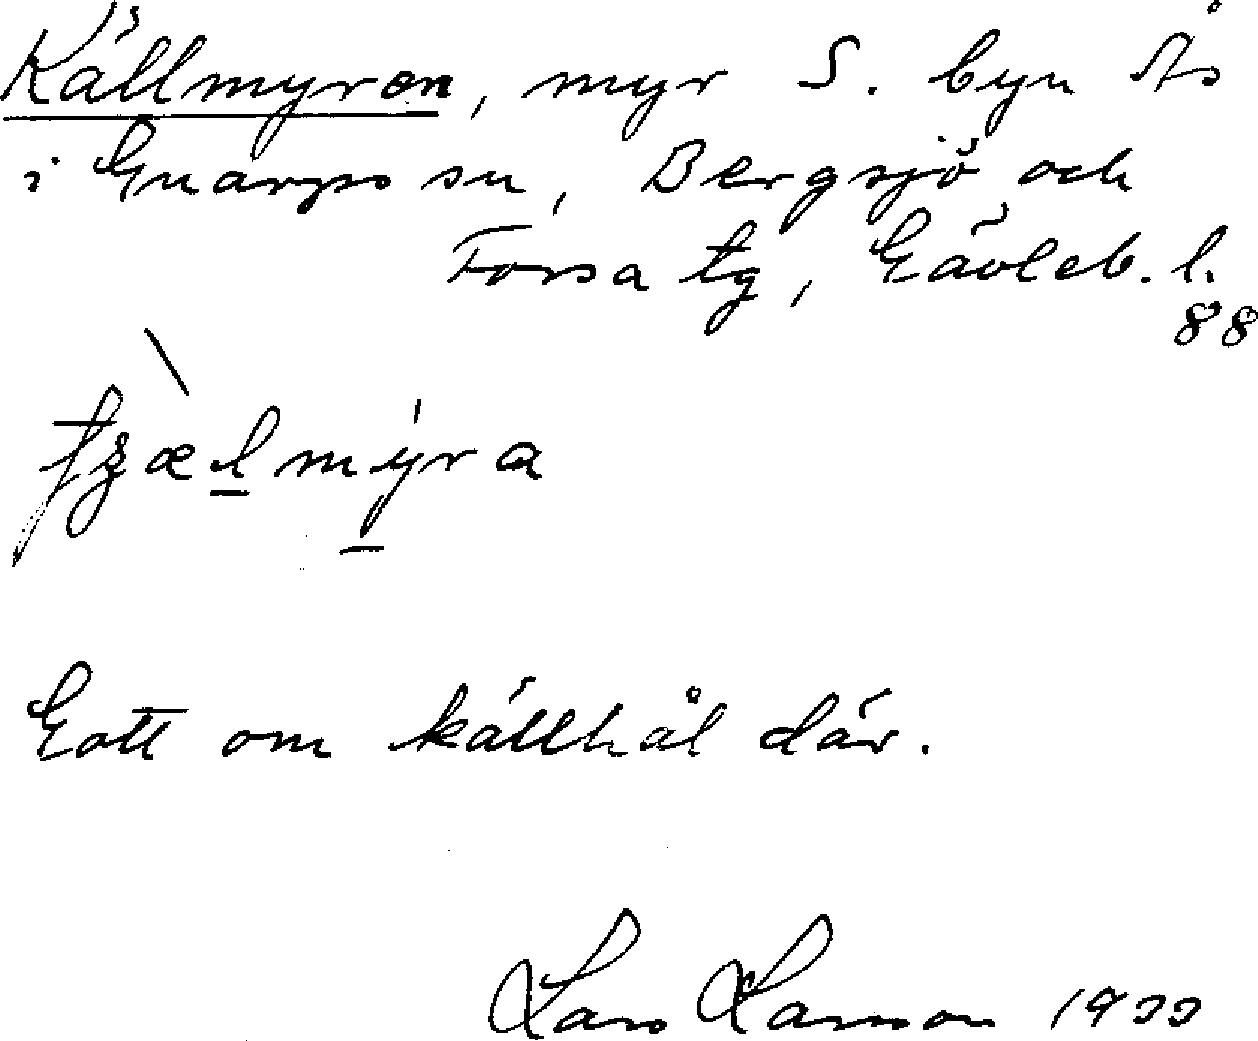 Källmyren, myr S. byn Ås
i Gnarps sn, Bergsjö och
Forsa tg, Gävleb. l.
88
Gott om källhål där.
Lars Larsson 1933